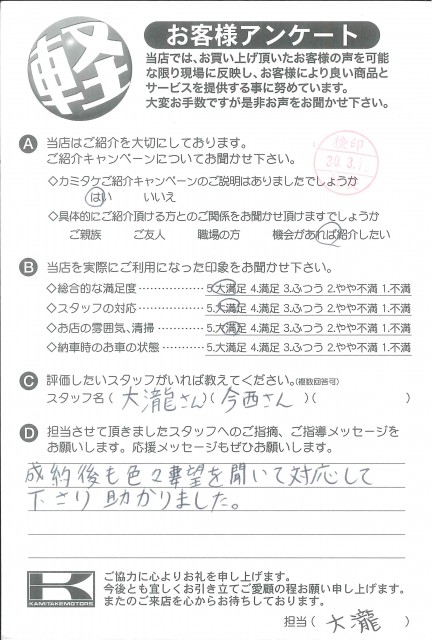 軽
お客様アンケート
当店では、お買い上げ頂いたお客様の声を可能
な限り現場に反映し、お客様により良い商品と
サービスを提供する事に努めています。
大変お手数ですが是非お声をお聞かせ下さい。
A 当店はご紹介を大切にしております。
ご紹介キャンペーンについてお聞かせ下さい。
検印
20.3.
◇カミタケご紹介キャンペーンのご説明はありましたでしょうか
はい いいえ
◇具体的にご紹介頂ける方とのご関係をお聞かせ頂けますでしょうか
ご親族 ご友人 職場の方 機会があれば紹介したい
B 当店を実際にご利用になった印象をお聞かせ下さい。
◇総合的な満足度 5.大満足 4.満足 3.ふつう 2.やや不満 1.不満
◇スタッフの対応 5.大満足 4.満足 3.ふつう 2.やや不満 1.不満
◇お店の雰囲気、清掃 5.大満足 4.満足 3.ふつう 2.やや不満 1.不満
◇納車時のお車の状態 5.大満足 4.満足 3.ふつう 2.やや不満 1.不満
C 評価したいスタッフがいれば教えてください。(複数回答可)
スタッフ名(大瀧さん)(今西さん)( )
D 担当させて頂きましたスタッフへのご指摘、ご指導メッセージを
お願いします。応援メッセージもぜひお願いします。
成約後も色々要望を聞いて対応して
下さり助かりました。
K
KAMITAKE MOTORS
ご協力に心よりお礼を申し上げます。
今後とも宜しくお引き立てご愛顧の程お願い申し上げます。
またのご来店を心からお待ちしております。
担当(大瀧)